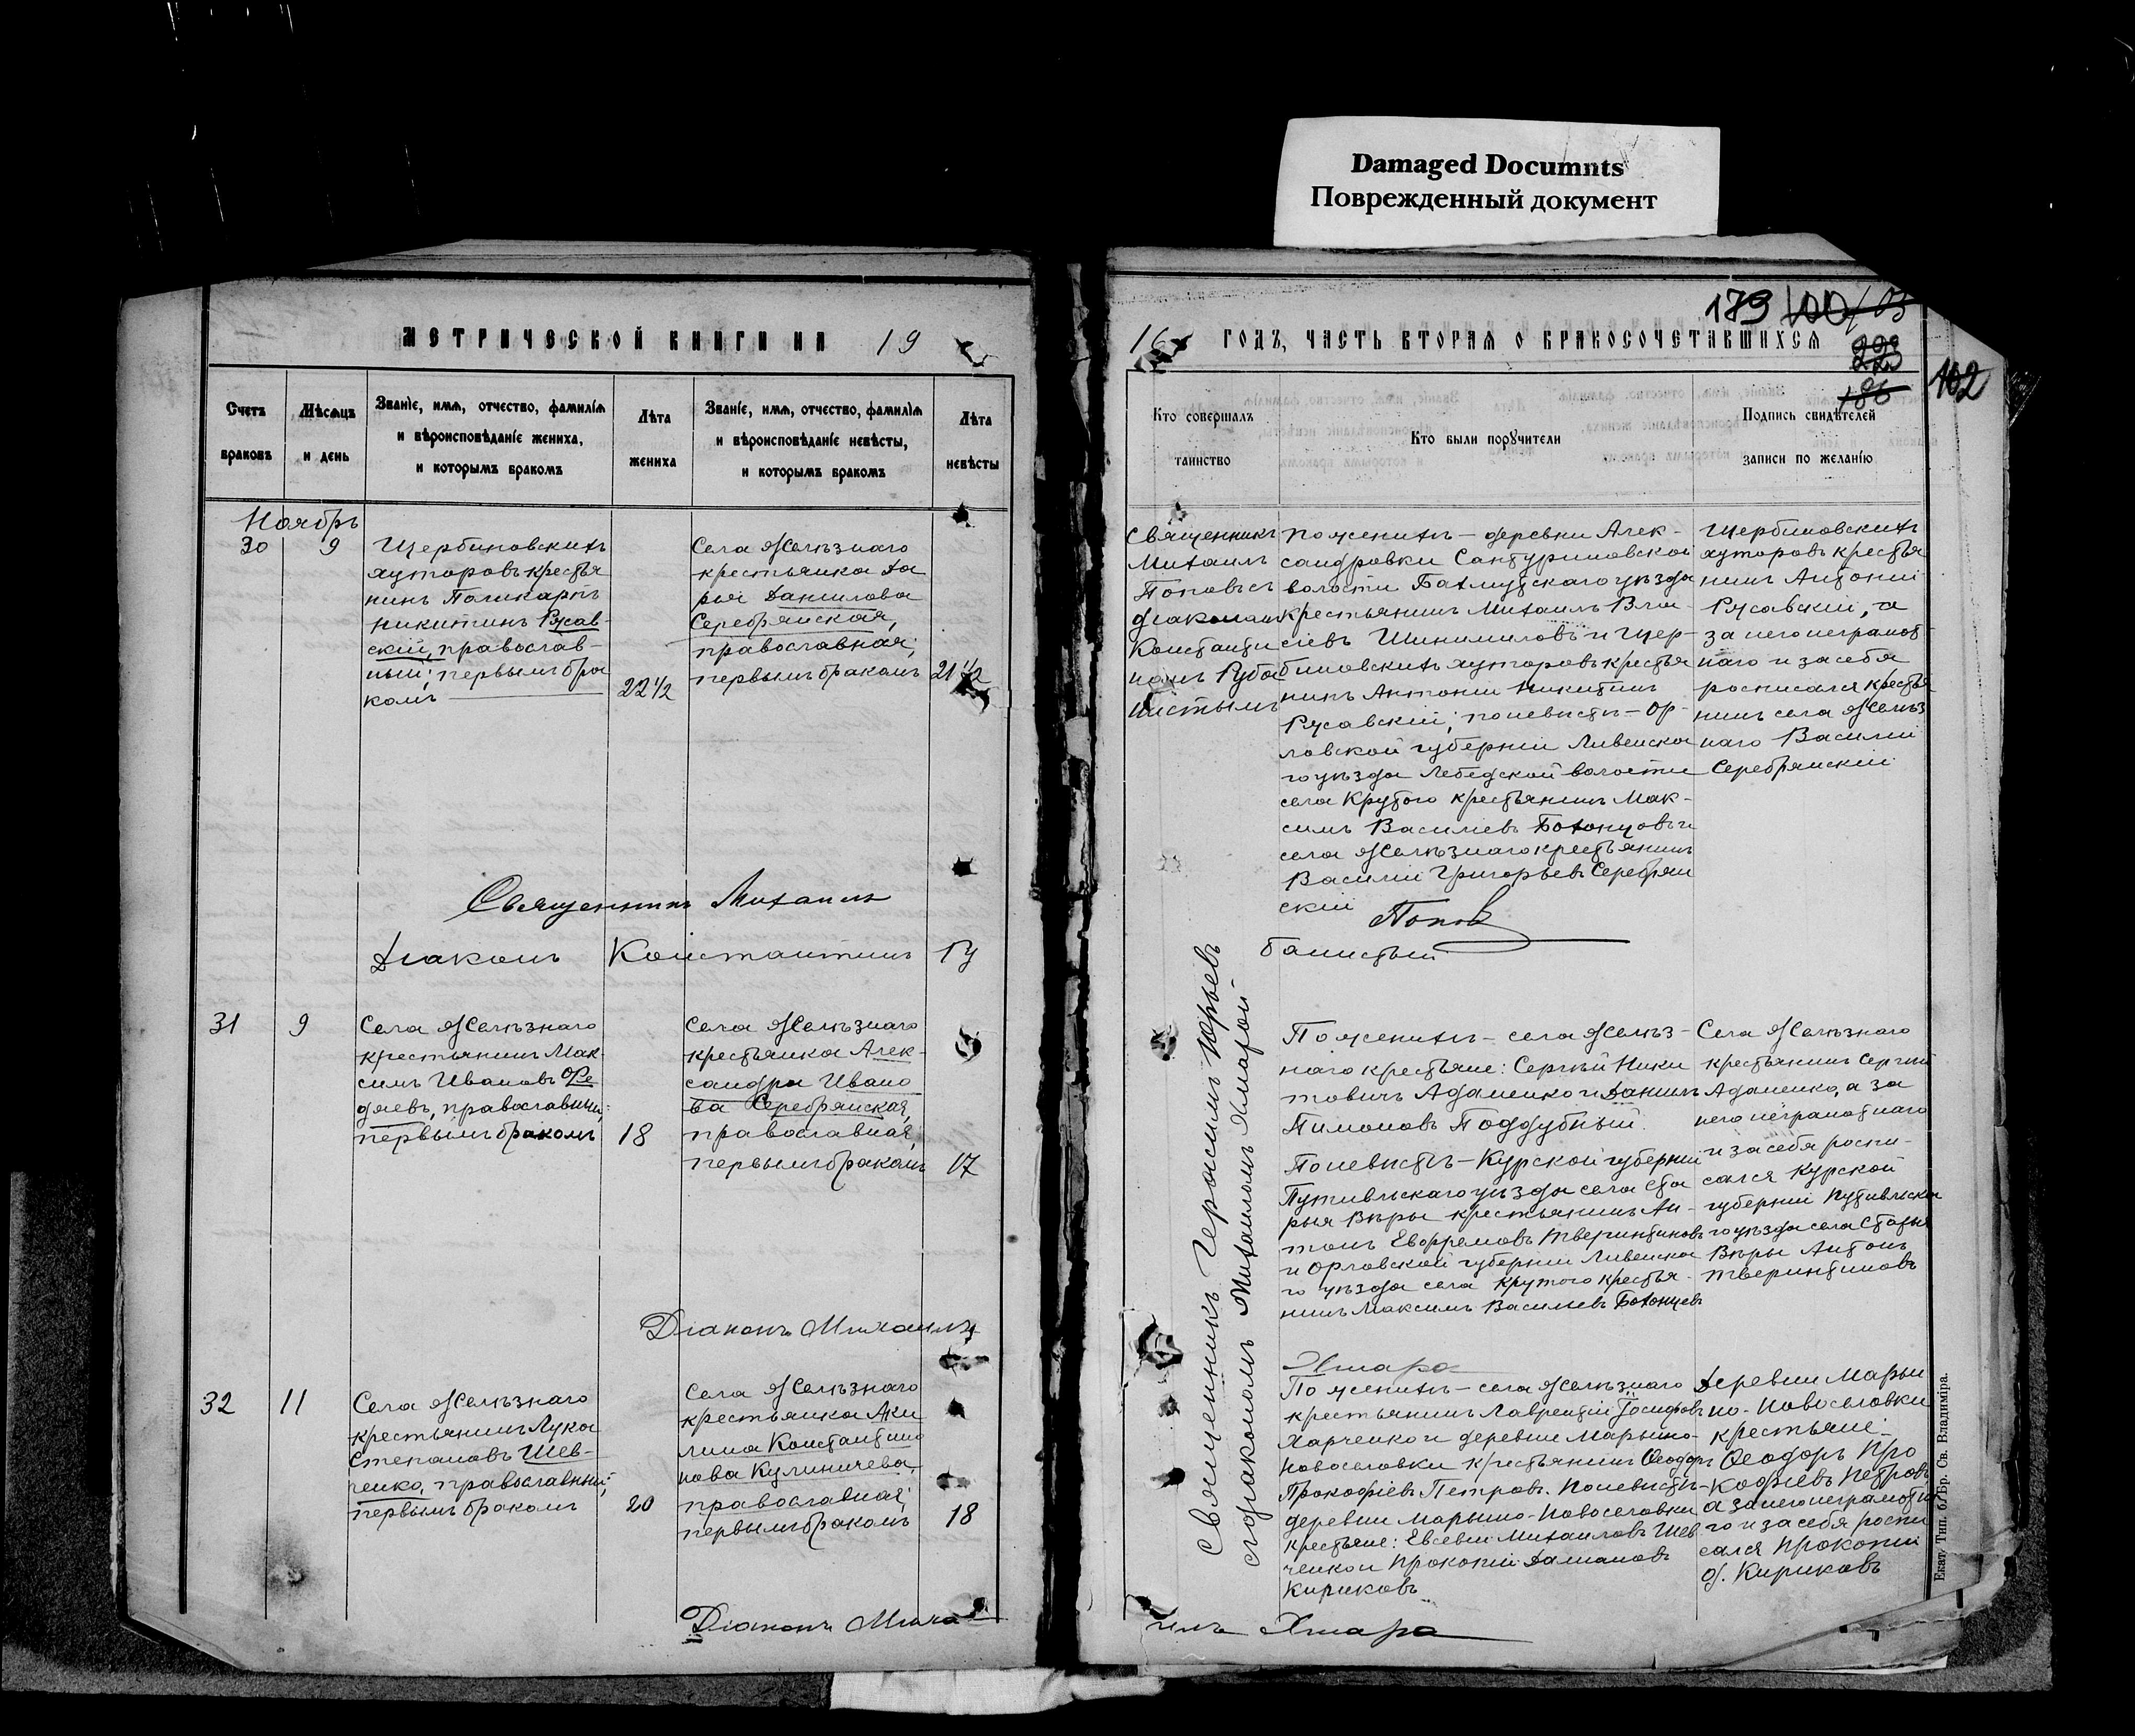 Damaged Documnts
Поврежденный документ
179 100 103
МЕТРИЧЕСКОЙ КНИГИ НА 19
16 ГОДЪ, ЧАСТЬ ВТОРАЯ О БРАКОСОЧЕТАВШИХСЯ
223
186
102
Счетъ
браковъ
Мѣсяцъ
и день
Званіе, имя, отчество, фамилія
и вѣроисповѣданіе жениха,
и которымъ бракомъ
Лѣта
жениха
Званіе, имя, отчество, фамилія
и вѣроисповѣданіе невѣсты,
и которымъ бракомъ
Лѣта
невѣсты
Кто совершалъ
таинство
Кто были поручители
Подпись свидѣтелей
записи по желанію
Ноябрь
30
9
Щербиновскихъ
хуторовъ крестья
нинъ Поликарпъ
Никитинъ Русав-
скій, православ-
ный; первымъ бра
комъ
22 1/2
Села Желѣзнаго
крестьянка Да
рья Данилова
Серебрянская,
православная;
первымъ бракомъ
21 1/2
Священникъ
Михаилъ
Поповъ съ
діакономъ
Константи
номъ Руба
нистымъ
По женихѣ — деревни Алек-
сандровки Сантуриновской
волости Бахмутскаго уѣзда
крестьянинъ Михаилъ Вла-
сіевъ Шинимиловъ и Щер-
биновскихъ хуторовъ крестья
нинъ Антоній Никитинъ
Русавскій; по невѣстѣ — Ор-
ловской губерніи Ливенска
го уѣзда Лебедской волости
села Крутого крестьянинъ Мак-
симъ Василіевъ Бахонцовъ и
села Желѣзнаго крестьянинъ
Василій Григорьевъ Серебрян
скій
Щербиновскихъ
хуторовъ крестья
нинъ Антоній
Русавскій, а
за него неграмот-
наго и за себя
росписался крестья
нинъ села Желѣз
наго Василій
Серебрянскій
Священникъ Михаилъ
Поповъ
Діаконъ Константинъ Ру
банистый
31
9
Села Желѣзнаго
крестьянинъ Мак-
симъ Ивановъ Фе
дяевъ, православный;
первымъ бракомъ
18
Села Желѣзнаго
крестьянка Алек-
сандра Ивано
ва Серебрянская,
православная,
первымъ бракомъ
17
Священникъ Герасимъ Юрьевъ
съ діакономъ Михаиломъ Хмарой
По женихѣ — села Желѣз-
наго крестьяне: Сергѣй Ники
товичъ Адаменко и Даніилъ
Пимоновъ Поддубный.
По невѣстѣ — Курской губерніи
Путивльскаго уѣзда села Ста
рыя Виры крестьянинъ Ан-
тонъ Евфремовъ Тверитиновъ
и Орловской губерніи Ливенска
го уѣзда села Крутого крестья-
нинъ Максимъ Василіевъ Бахонцевъ
Села Желѣзнаго
крестьянинъ Сергѣй
Адаменко, а за
него неграмотнаго
и за себя роспи-
сался Курской
губерніи Путивльска
го уѣзда села Старыя
Виры Антонъ
Тверитиновъ
Діаконъ Михаилъ
Хмара
32
11
Села Желѣзнаго
крестьянинъ Лука
Степановъ Шев-
ченко, православный;
первымъ бракомъ
20
Села Желѣзнаго
крестьянка Аки
лина Константи
нова Кулиничева,
православная;
первымъ бракомъ
18
По женихѣ — села Желѣзнаго
крестьянинъ Лаврентій Іосифовъ
Харченко и деревни Марьино-
Новоселовки крестьянинъ Ѳеодоръ
Прокофіевъ Петровъ. По невѣстѣ —
деревни Марьино-Новоселовки
крестьяне: Евсевій Михаиловъ Шев
ченко и Прокопій Даміановъ
Кириковъ
Деревни Марьи
но-Новоселовки
крестьяне:
Ѳеодоръ Про
кофіевъ Петровъ
а за него неграмотна
го и за себя роспи
сался Прокопій
Д. Кириковъ
Діаконъ Миха
илъ Хмара
Екат. Тип. б. Бр. Св. Владиміра.